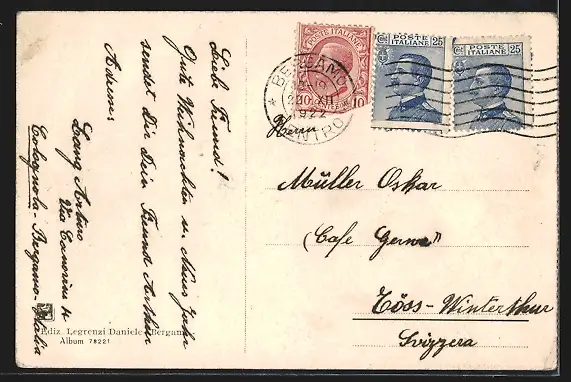 Liebe Freund!
Gute Weihnachten u. Neues Jahr
sendet Dir Dein Freund Arthur
Adresse
Lang Arturo
Via Canovino 4
Colognola - Bergamo - Italia
Ediz. Legrenzi Daniele - Bergamo
Album 78221
BERGAMO
XII
1922
CENTRO
POSTE ITALIANE
10 10
POSTE
ITALIANE
25
POSTE
ITALIANE
25
Herrn
Müller Oskar
(Cafe
Töss-Winterthur
Svizzera